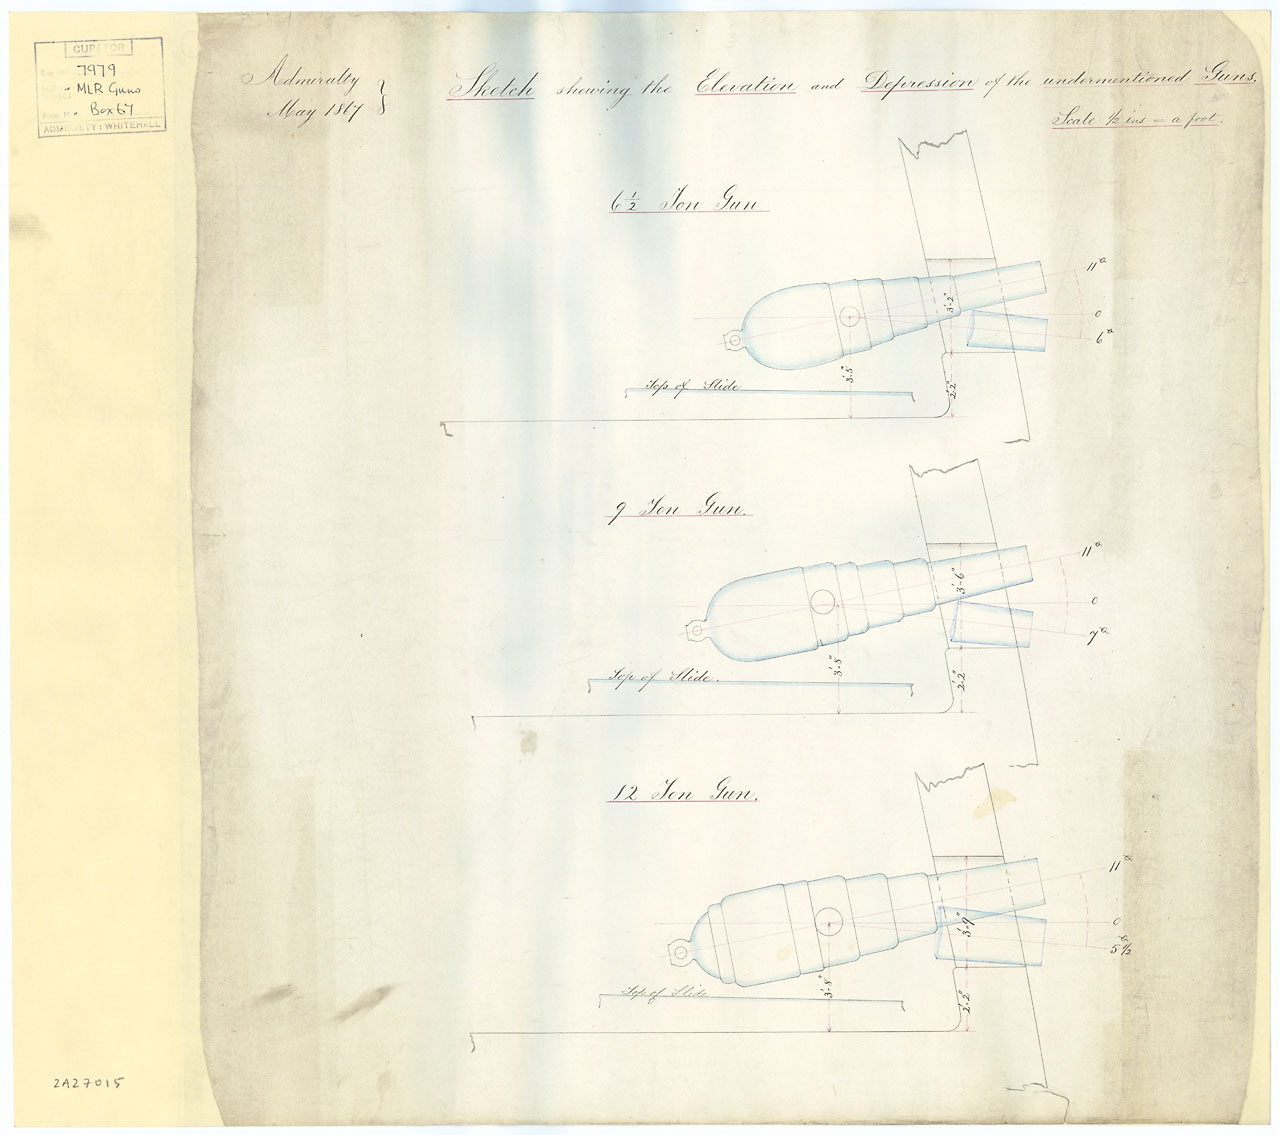 CURATOR
7979
MLR Guns
Box 67
ADMIRALTY: WHITEHALL
Admiralty
May 1867
Sketch shewing the Elevation and Depression of the undermentioned Guns.
Scale ½ ins = a foot.
6½ Ton Gun
11°
3'-2"
0
6°
3'.5"
Top of Slide
2'.2"
9 Ton Gun.
11°
3'-6"
0
7°
3'-8"
Top of Slide.
2'-2"
12 Ton Gun.
11°
3'-9"
0
5½°
3'-8"
Top of Slide
2'-2"
2A27015